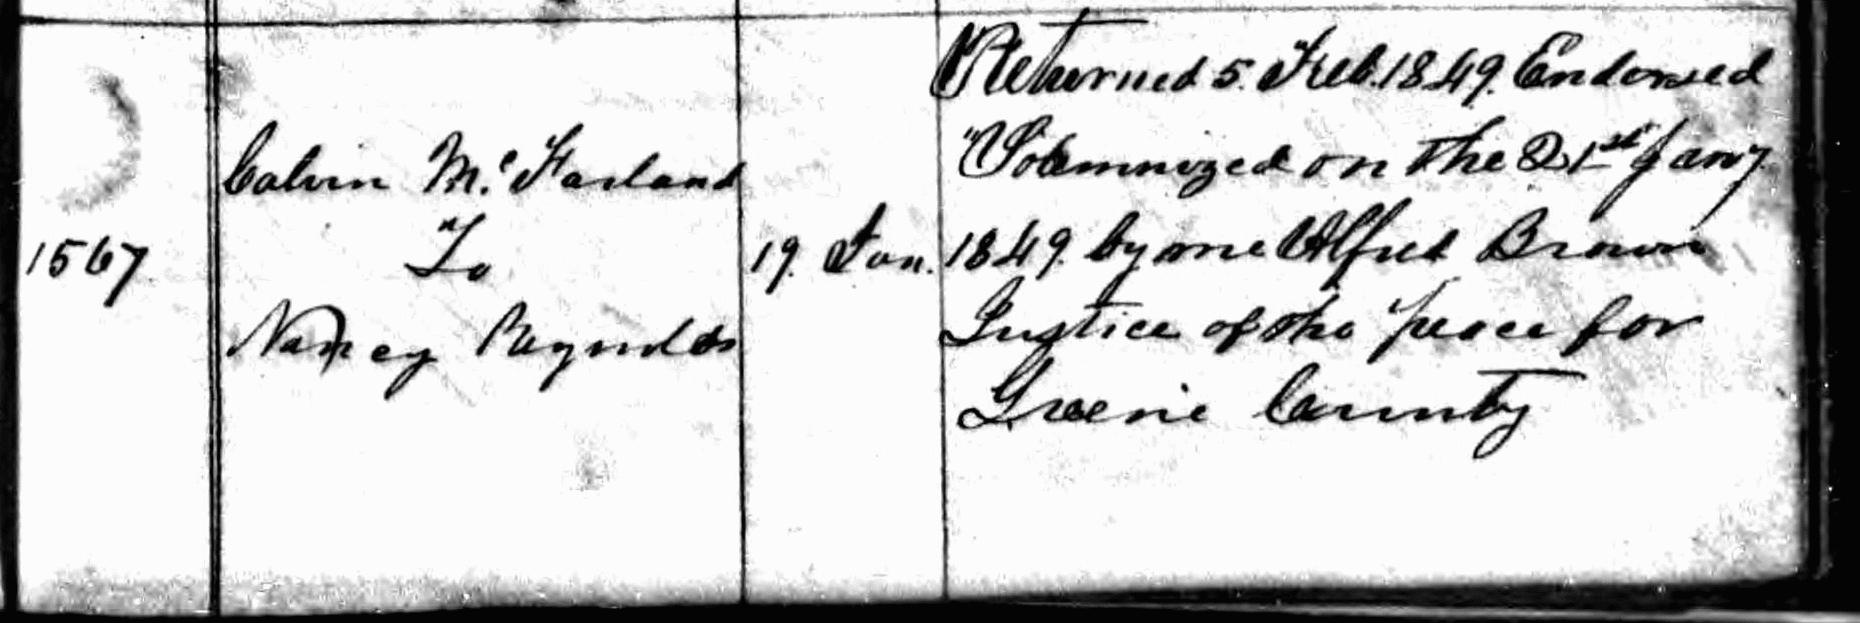 1567
Calvin Mc Farland
To
Nancy Reynolds
19. Jan.
Returned 5. Feb. 1849. Endorsed
"Solemnized on the 21st Jany
1849. by me Alfred Brown
Justice of the Peace for
Greene County